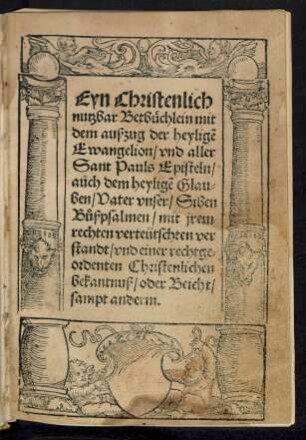 Eyn Christenlich
nutzbar Betbüchlein mit
dem außzug der heyligē
Ewangelion/ vnd aller
Sant Pauls Episteln/
auch dem heyligē Glau⸗
ben/ Vater vnser/ Siben
Bůßpsalmen/ mit jrem
rechten verteütschten ver
standt/ vnd einer rechtge⸗
ordenten Christenlichen
bekantnuß/ oder Beicht/
sampt anderm.